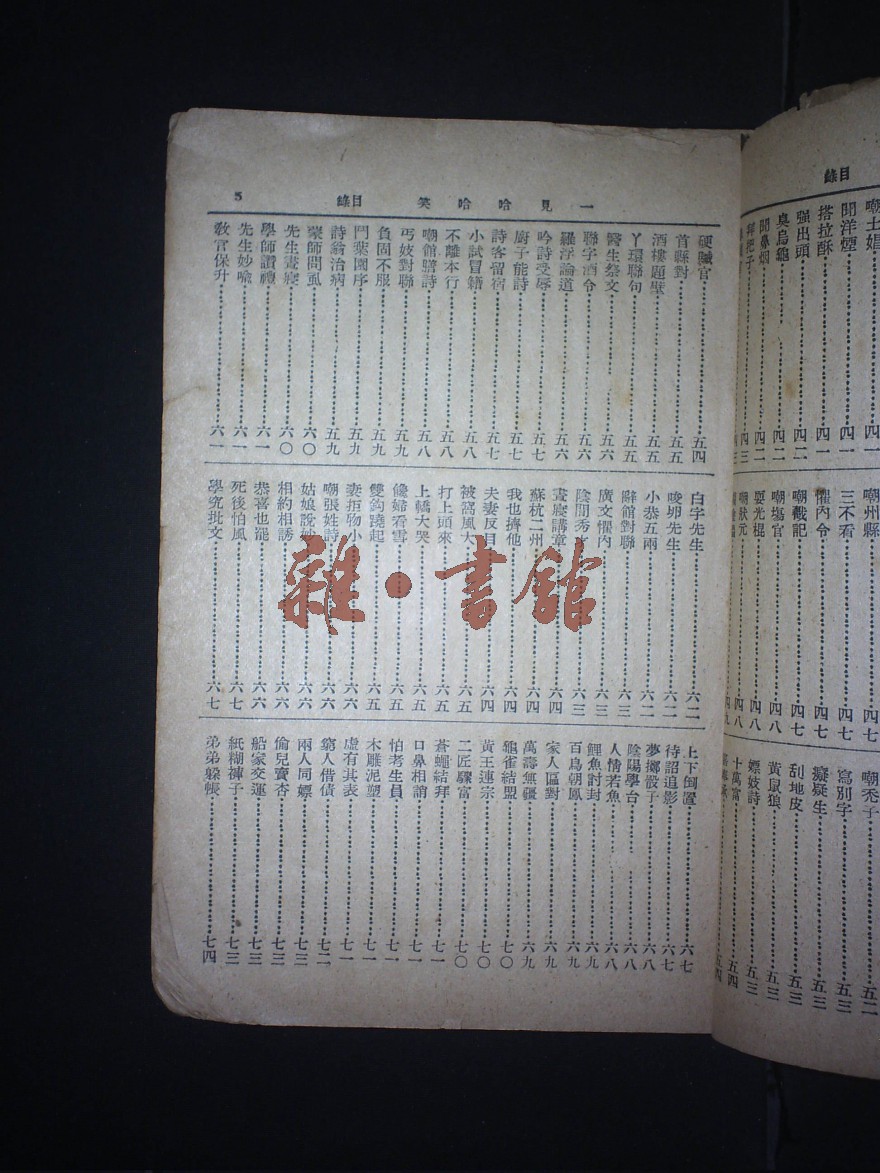 一見哈哈笑 目錄 5
硬贓官 五四
首縣對 五五
酒樓題壁 五五
丫環聯句 五五
醫生祭文 五六
聯字酒令 五六
羅浮論道 五六
吟詩受辱 五七
廚子能詩 五七
詩客留宿 五七
小試冒籍 五八
不離本行 五八
嘲館膳詩 五八
丐妓對聯 五九
負固不服 五九
鬥葉園序 五九
詩翁治病 五九
蒙師問虱 六〇
先生晝寢 六〇
學師讚禮 六一
先生妙喩 六一
敎官保升 六一
白字先生 六二
唆卯先生 六二
小恭五兩 六二
辭館對聯 六三
廣文懼內 六三
陰間秀才 六三
晝寢講章 六四
蘇杭二州 六四
我也擠他 六四
夫妻反目 六四
被窩風大 六五
打上頭來 六五
上轎大哭 六五
饞婦看雪 六五
雙鈎蹺起 六五
妻拒物小 六六
嘲張姓詩 六六
姑娘說 六六
相約相誘 六六
恭喜也罷 六六
死後怕風 六七
學究批文 六七
上下倒置 六七
待詔追影 六七
夢擲骰子 六八
陰陽學台 六八
人情若魚 六八
鯉魚討封 六九
百鳥朝鳳 六九
家人區對 六九
萬壽無疆 六九
龜雀結盟 七〇
黃王連宗 七〇
二匠驟富 七〇
蒼蠅結拜 七一
口鼻相誚 七一
怕考生員 七一
木雕泥塑 七一
虛有其表 七一
窮人借債 七二
兩人同嫖 七三
偷兒賣杏 七三
船家交運 七三
紙糊褲子 七三
弟弟躲帳 七四
目錄
嘲土娼 四一
聞洋煙 四一
搭拉酥 四一
强出頭 四二
臭烏龜 四二
聞鼻烟 四二
拜把子 四三
嘲州縣 四七
三不看 四七
懼內令 四七
嘲戳記 四七
嘲塲官 四八
耍光棍 四八
嘲狀元 四八
嘲禿子 五二
寫別字 五三
癡疑生 五三
刮地皮 五三
黃鼠狼 五三
嫖妓詩 五三
十萬富 五四
雜·書館